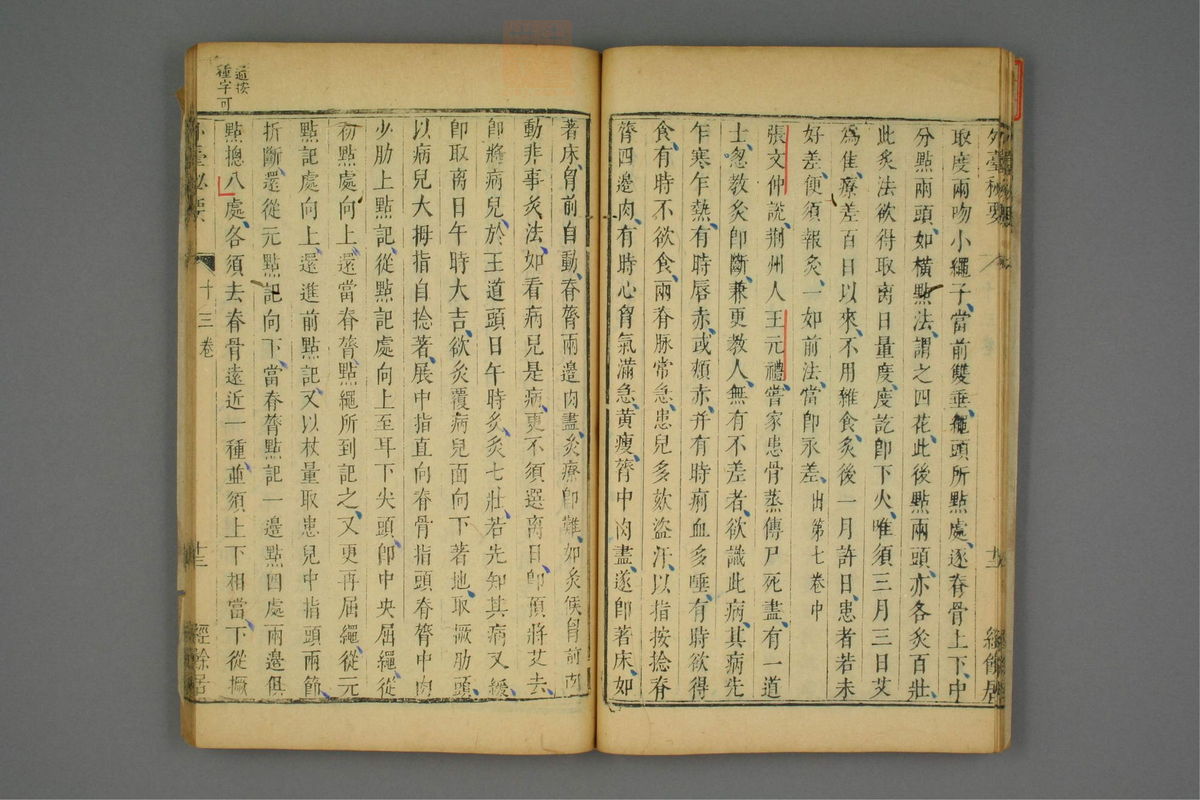 外臺祕要
取度兩吻小繩子當前雙垂繩頭所點處逐脊骨上下中
分點兩頭如橫點法謂之四花此後點兩頭亦各灸百壯
此灸法欲得取离日量度度訖卽下火唯須三月三日艾
爲佳療差百日以來不用雜食灸後一月許日患者若未
好差便須報灸一如前法當卽永差出第七卷中
張文仲說荆州人王元禮嘗家患骨蒸傳尸死盡有一道
士忽教灸卽斷兼更教人無有不差者欲識此病其病先
乍寒乍熱有時唇赤或頰赤并有時痢血多唾有時欲得
食有時不欲食兩脊脉常急患兒多欬盜汗以指按捻脊
膂四邊肉有時心胷氣滿急黃瘦膂中肉盡遂卽著床如
十三 經餘居
著床胷前自動脊膂兩邊肉盡灸療卽難如灸候胷前肉
動非事灸法如看病兒是病更不須選离日卽須將艾去
卽將病兒於王道頭日午時灸灸七壯若先知其病又緩
卽取离日午時大吉欲灸覆病兒面向下著地取橛肋頭
以病兒大拇指自捻著展中指直向脊骨指頭脊膂中肉
少肋上點記從點記處向上至耳下尖頭卽中央屈繩從
初點處向上還當脊膂點繩所到記之又更再屈繩從元
點記處向上還進前點記又以杖量取患兒中指頭兩節
折斷還從元點記向下當脊膂點記一邊點四處兩邊俱
點摠八處各須去脊骨遠近一種並須上下相當下從橛
外臺祕要 十三卷 十三 經餘居
種字可